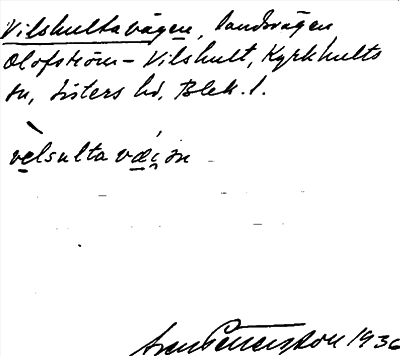 Vilshultavägen, landsvägen
Olofström – Vilshult, Kyrkhults
sn, Listers hd, Blek. l.
vèlsulta væ̀i̯ən
Sven Pettersson 1936